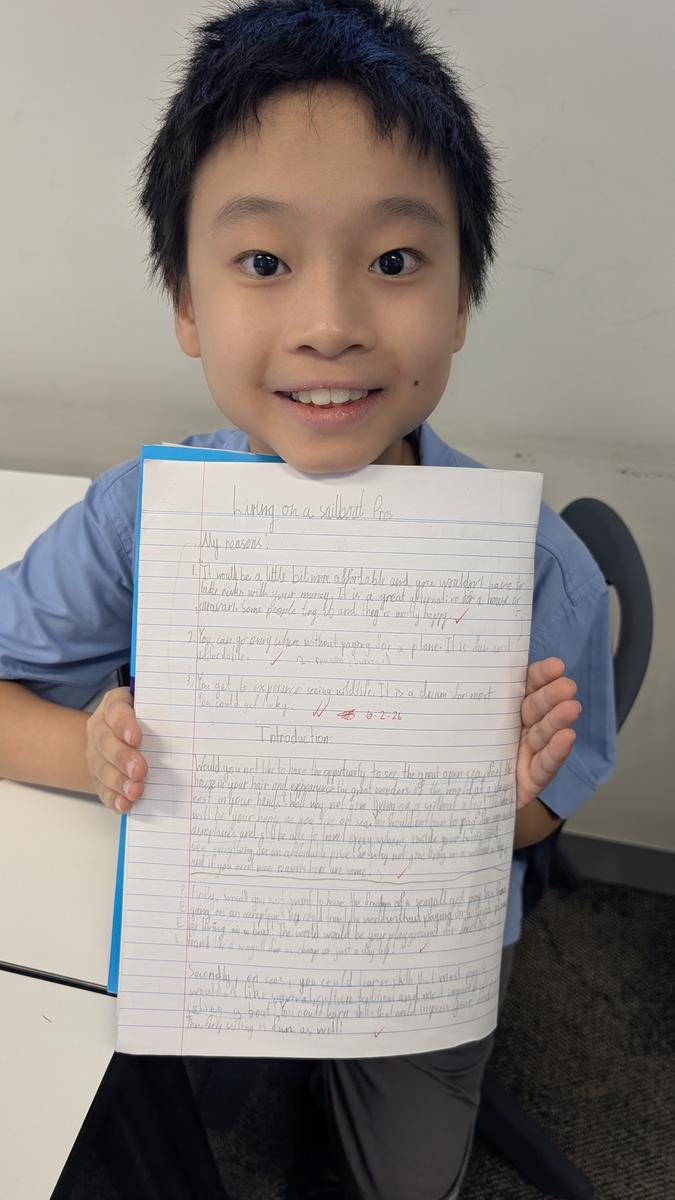 Living on a sailboat Pros
My reasons:
1. It would be a little bet more affordable and you wouldn't have to
take risks with your money. It is a great alternative for a house or
caravan. Some people try it and they're mostly happy.
2. You can go anywhere without paying for a plane. It is fun and
affordable.
3. You get to experience seeing wildlife. It is a dream for most
You could get lucky.
6.2.26
Introduction:
Would you not like to have the opportunity to see the great open sea, feel the
in your hair and experience the great wonders of the
cost in your hands? Well why not give living on a sailboat a
will be your home as you live on sea. You would not have to pay for
aeroplanes and still be able to travel every where, inside your
see everything for an affordable price. So why not give living on a
and if you need more reasons here are some.
P Firstly, would you not want to have the freedom of a seagull
E going on an aeroplane? You could travel the world without
E by living on a boat! The world would be your playground
L travel like a seagull for as cheap as just a day
Secondly, on seas, you could learn skills that most
wouldn't like survival, and most
a boat. You could learn skills that would improve your
Trust me, sailing is fun as well!